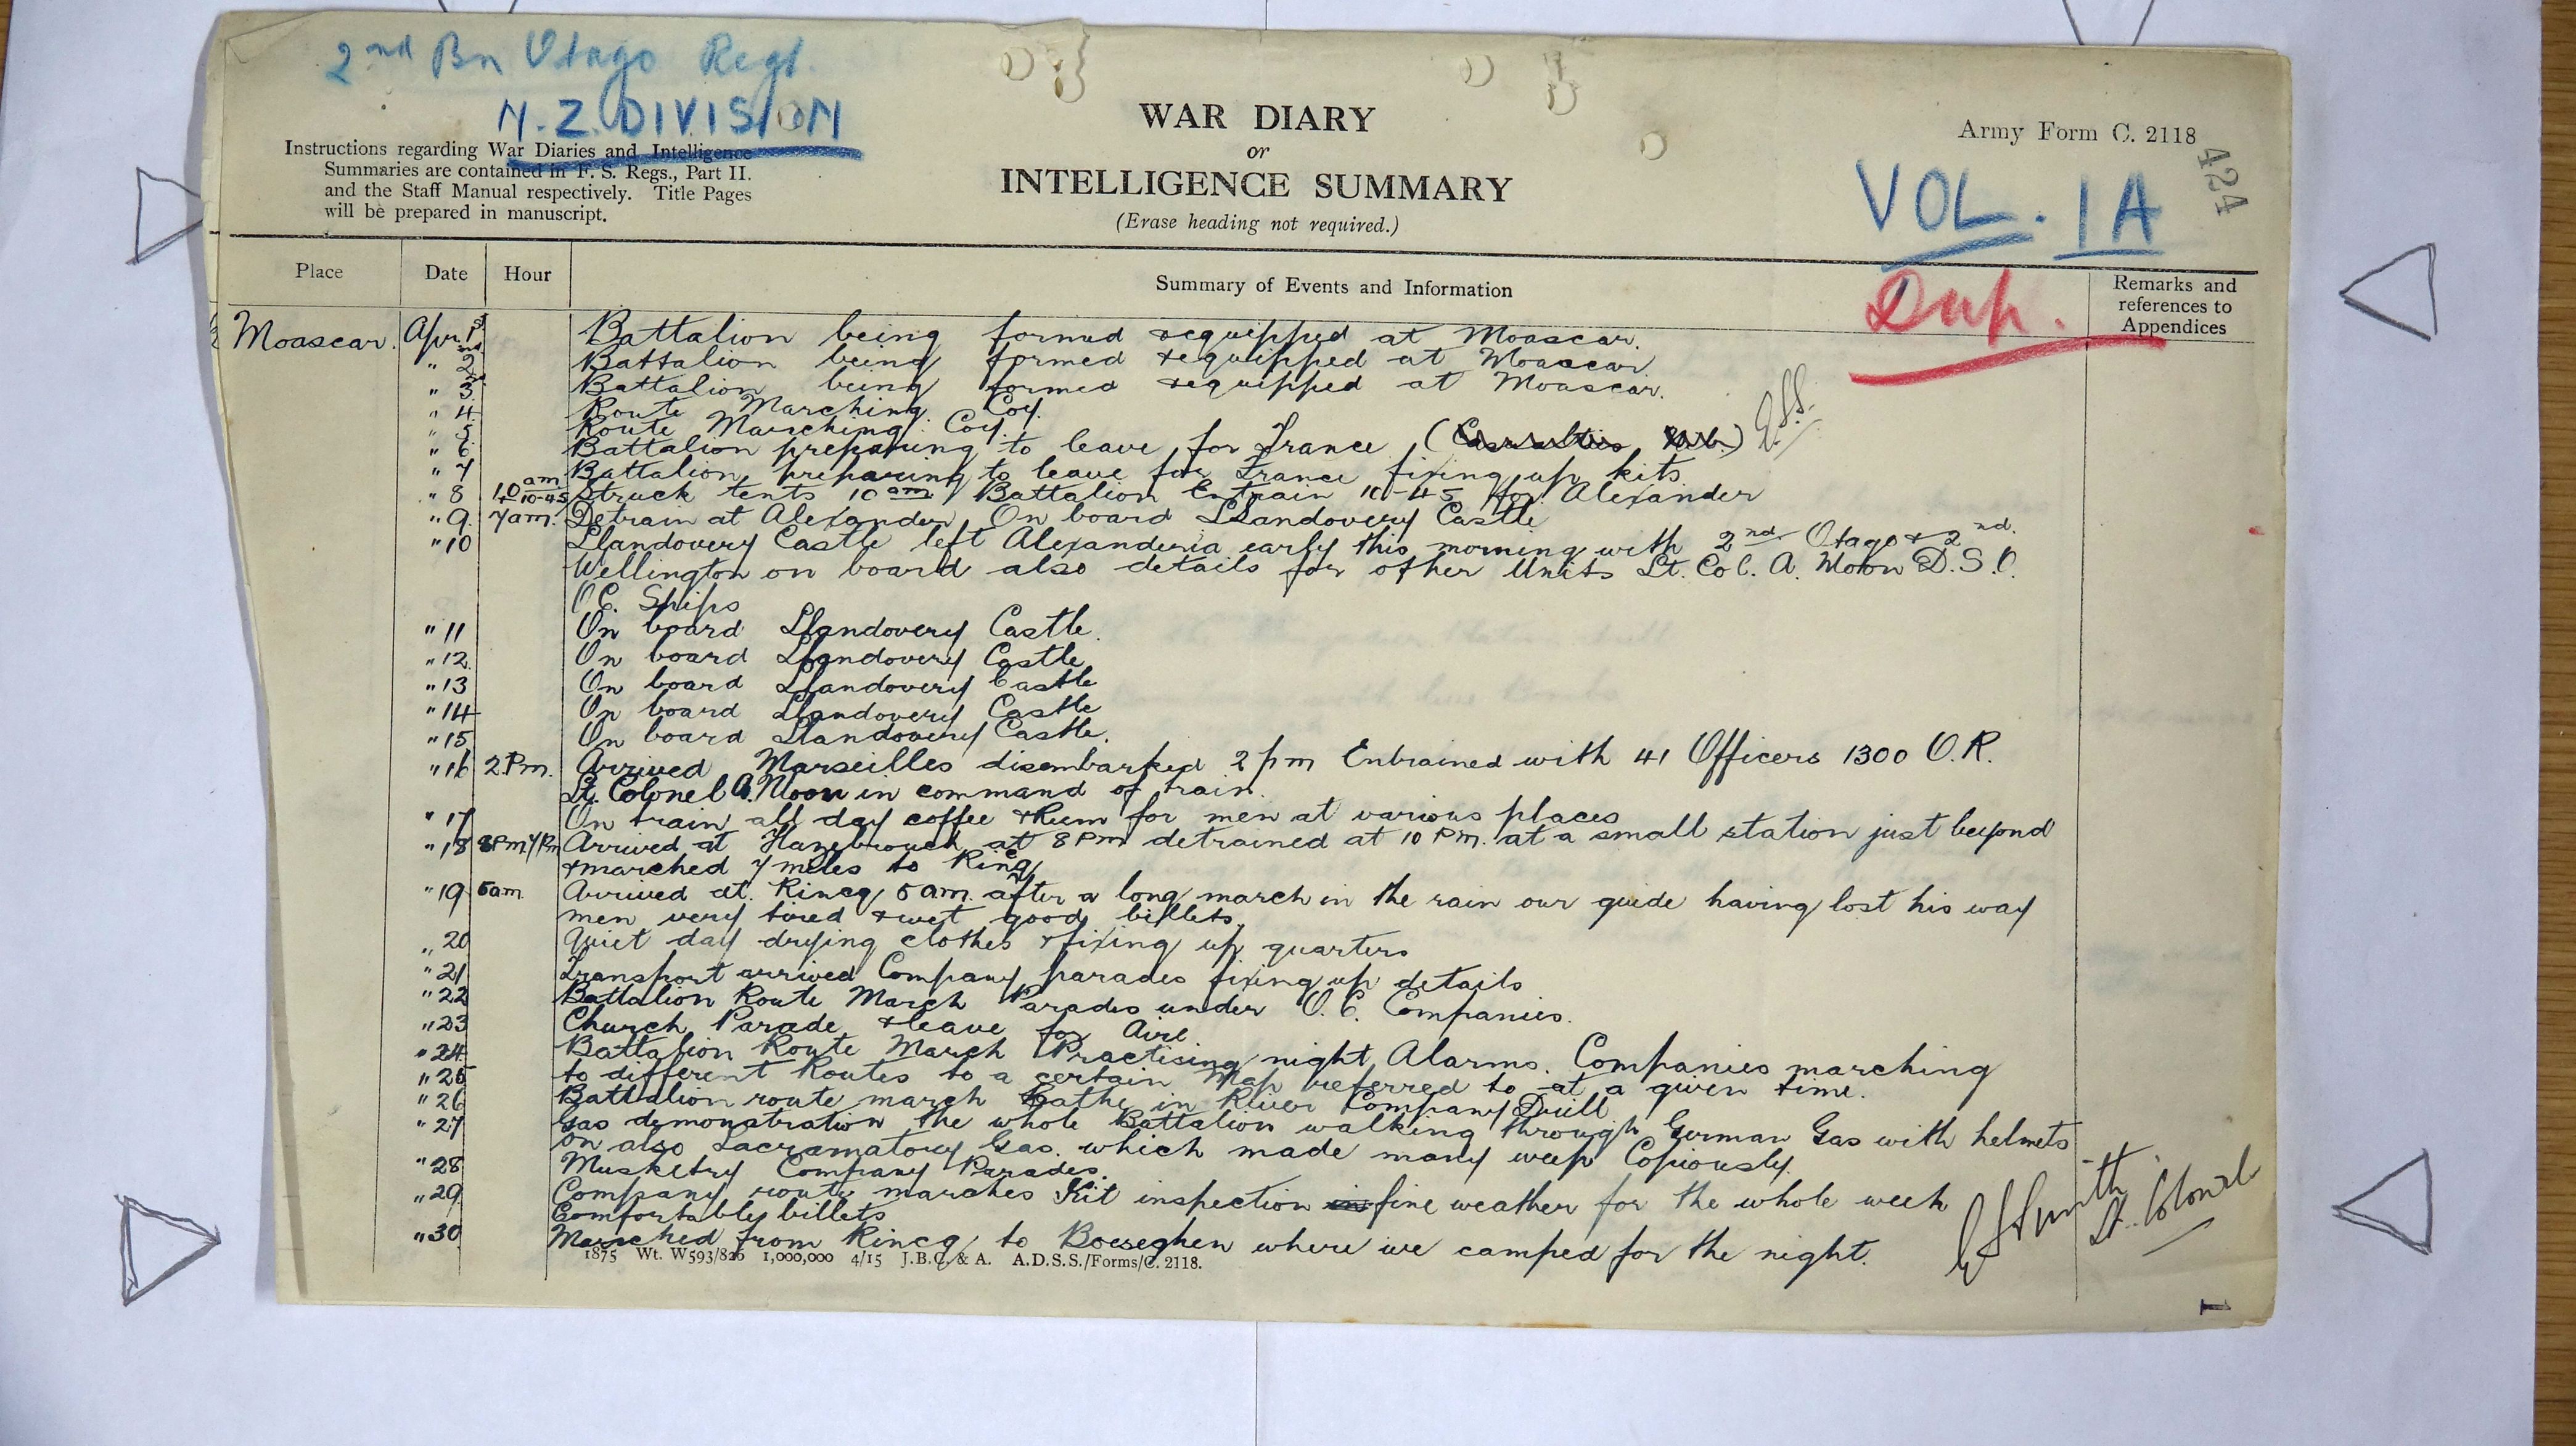 2nd Bn Otago Regt.
N.Z. DIVISION
Instructions regarding War Diaries and Intelligence
Summaries are contained in F. S. Regs., Part II.
and the Staff Manual respectively. Title Pages
will be prepared in manuscript.
WAR DIARY
or
INTELLIGENCE SUMMARY
(Erase heading not required.)
Army Form C. 2118
424
VOL. 1A
Dup.
Place Date Hour Summary of Events and Information Remarks and references to Appendices
Moascar. Apr. 1st Battalion being formed & equipped at Moascar.
" 2nd Battalion being formed & equipped at Moascar
" 3rd Battalion being formed & equipped at Moascar.
" 4 Route Marching Coy.
" 5 Route Marching Coy.
" 6 Battalion preparing to leave for France (Casualties Nil.)
" 7 Battalion preparing to leave for France fixing up kits
" 8 10 am + 10-45 Struck tents 10 am Battalion Entrain 10-45 for Alexander
" 9. 7am. Detrain at Alexander On board Llandovery Castle
" 10 Llandovery Castle left Alexanderia early this morning with 2nd Otago & 2nd.
Wellington on board also details for other Units Lt. Col. A. Moon D.S.O.
O.C. Ships
" 11 On board Llandovery Castle.
" 12. On board Llandovery Castle
" 13 On board Llandovery Castle
" 14 On board Llandovery Castle
" 15 On board Llandovery Castle.
" 16 2.Pm. Arrived Marseilles disembarked 2 pm Entrained with 41 Officers 1300 O.R.
Lt. Colonel A. Moon in command of train.
" 17 On train all day coffee & Rum for men at various places
" 18 8Pm Arrived at Hazebrouck at 8 Pm detrained at 10 Pm. at a small station just beyond
& marched 7 miles to Rincq
" 19 5am. Arrived at. Rincq 5 am. after a long march in the rain our guide having lost his way
men very tired & wet good billets.
" 20 Quiet day drying clothes & fixing up quarters
" 21 Transport arrived Company parades fixing up details
" 22 Battalion Route March Parades under O.C. Companies.
" 23 Church Parade & leave for Aire
" 24 Battalion Route March Practising night Alarms. Companies marching
" 25 to different Routes to a certain Map referred to at a given time.
" 26 Battalion route march Bathe in River Company Drill
" 27 Gas demonstration the whole Battalion walking through German Gas with helmets
on also Lacramatory Gas. which made many weep Copiously.
" 28 Musketry Company Parades.
" 29 Company route marches Kit inspection in fine weather for the whole week
Comfortably billets
" 30 Marched from Rincq to Boeseghen where we camped for the night.
E S Smith
Lt. Colonel
1875 Wt. W593/826 1,000,000 4/15 J.B.C. & A. A.D.S.S./Forms/C. 2118.
1